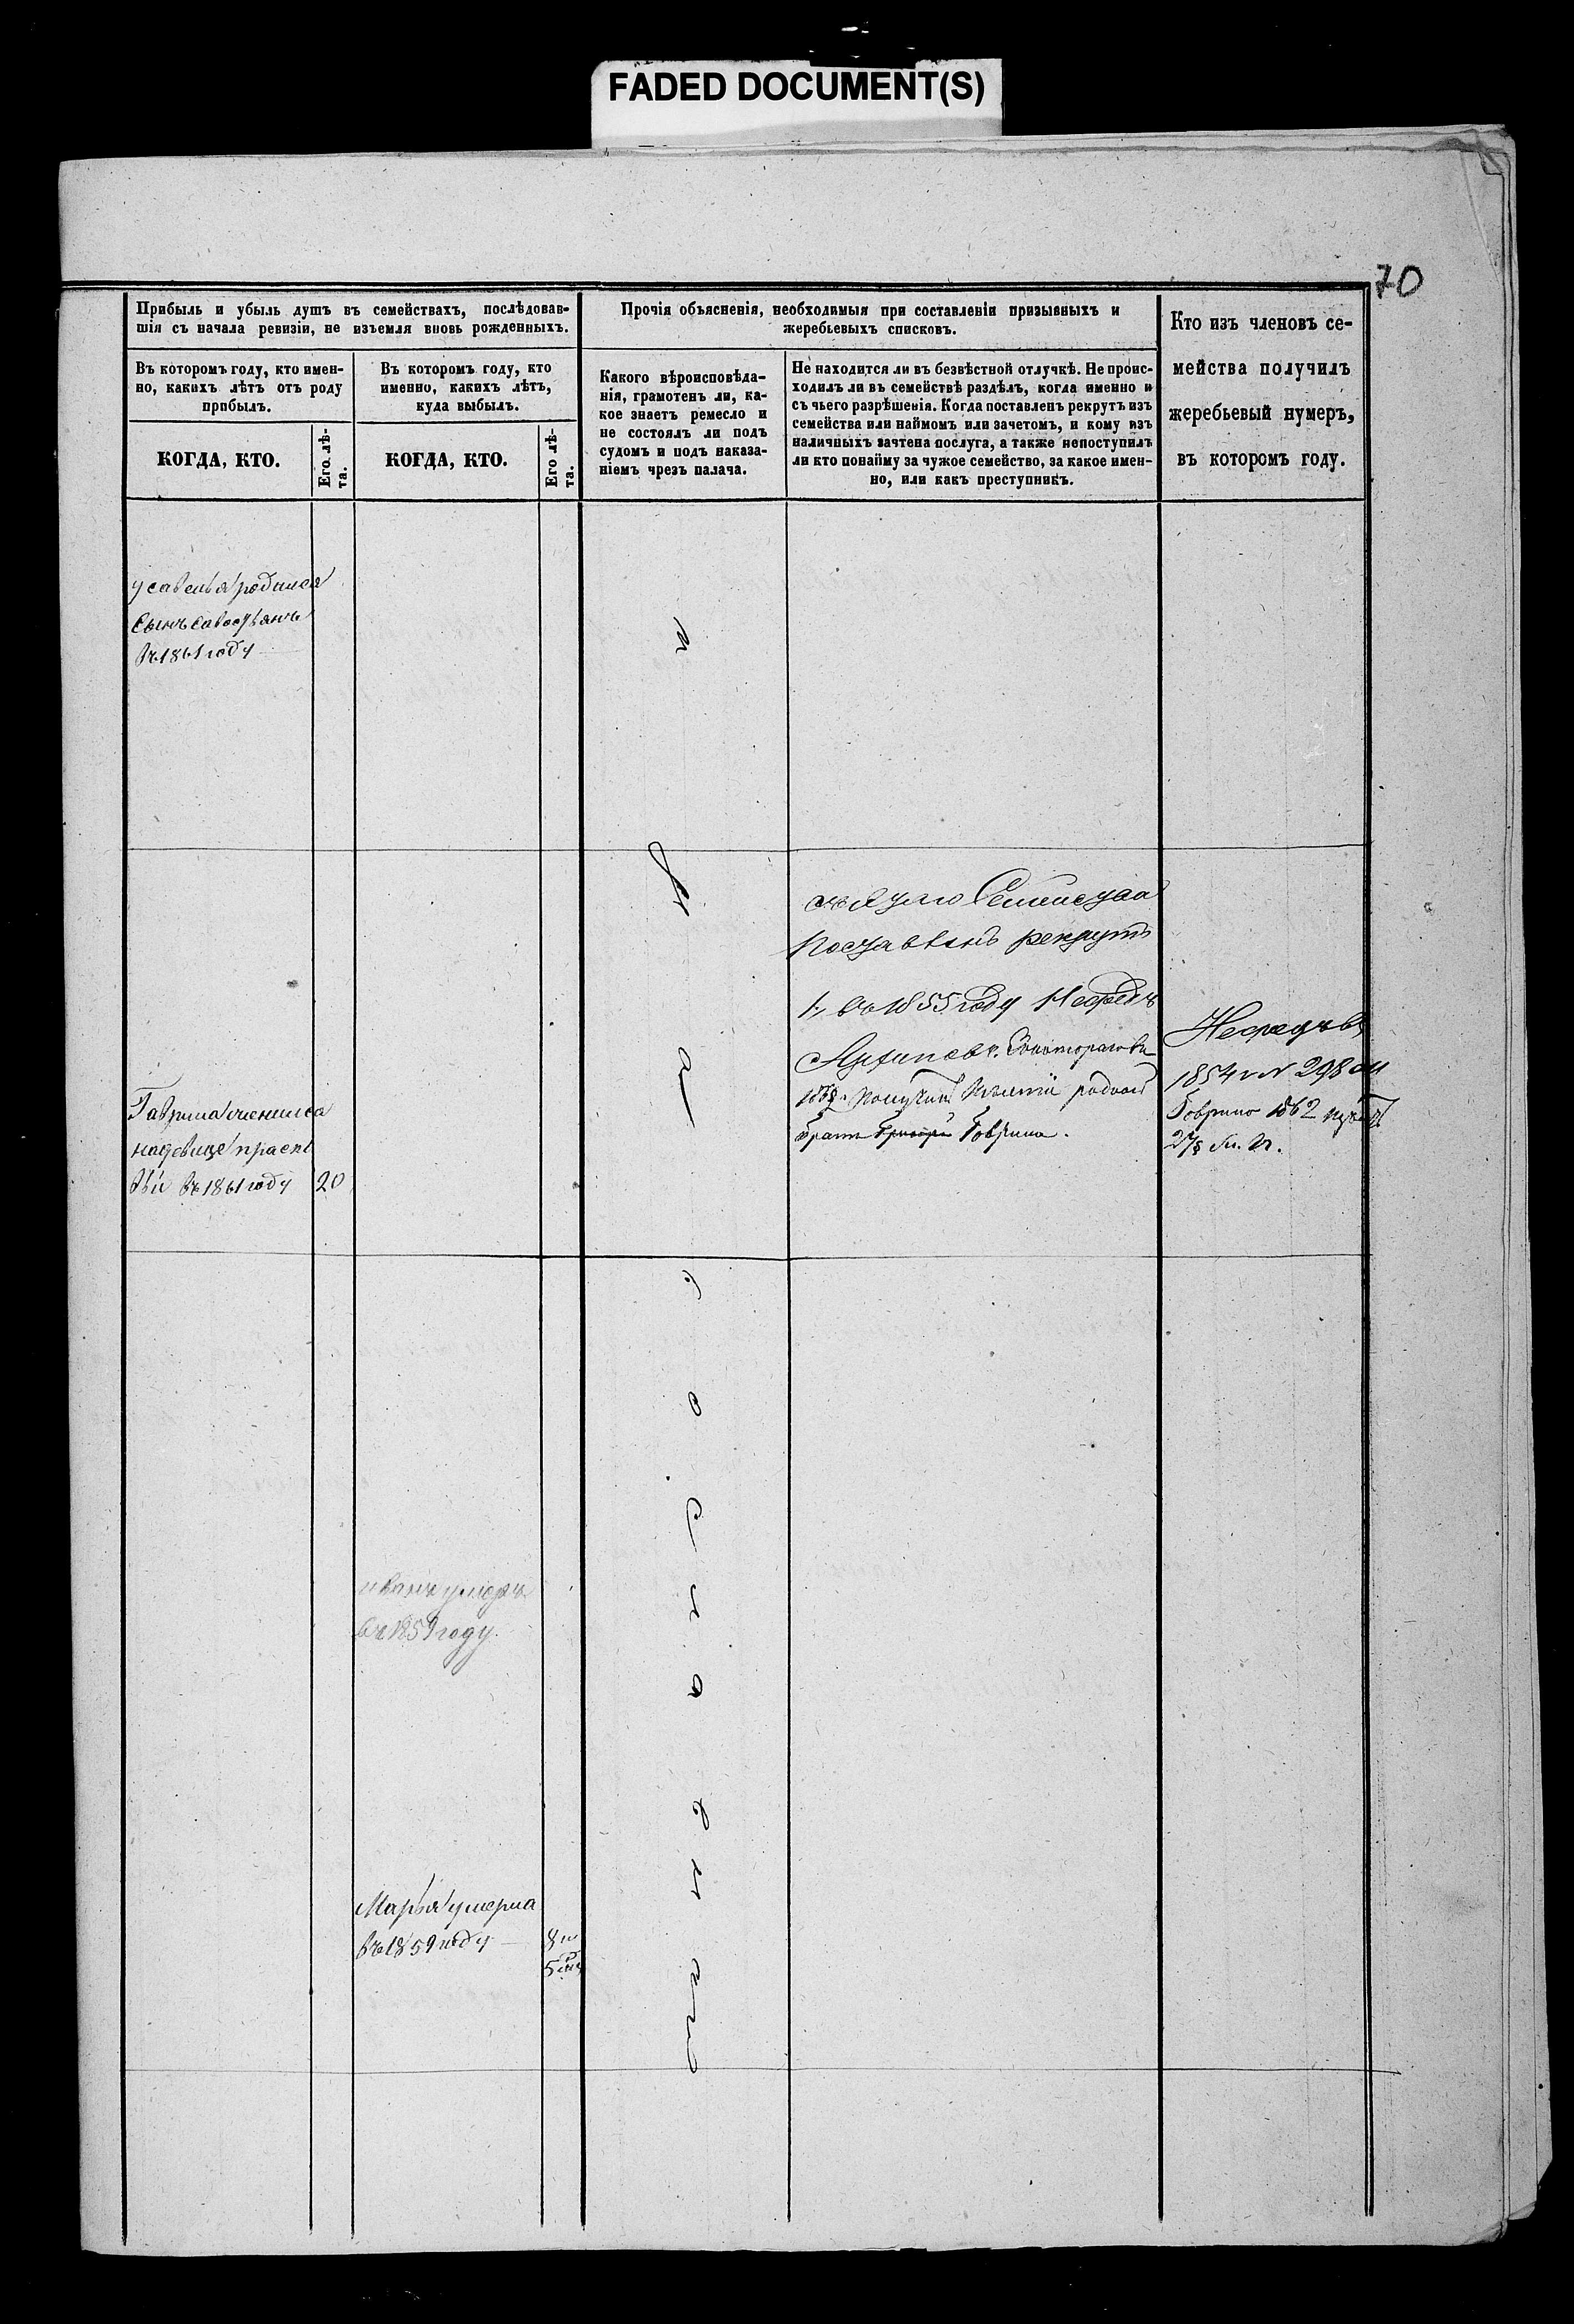 FADED DOCUMENT(S)
70
Прибыль и убыль душъ въ семействахъ, послѣдовав-
шія съ начала ревизіи, не изъемля вновь рожденныхъ.
Въ которомъ году, кто имен-
но, какихъ лѣтъ отъ роду
прибылъ.
КОГДА, КТО.
Его лѣ-
та.
Въ которомъ году, кто
именно, какихъ лѣтъ,
куда выбылъ.
КОГДА, КТО.
Его лѣ-
та.
Прочія объясненія, необходимыя при составленіи призывныхъ и
жеребьевыхъ списковъ.
Какого вѣроисповѣда-
нія, грамотенъ ли, ка-
кое знаетъ ремесло и
не состоялъ ли подъ
судомъ и подъ наказа-
ніемъ чрезъ палача.
Не находится ли въ безвѣстной отлучкѣ. Не проис-
ходилъ ли въ семействѣ раздѣлъ, когда именно и
съ чьего разрѣшенія. Когда поставленъ рекрутъ изъ
семейства или наймомъ или зачетомъ, и кому изъ
наличныхъ зачтена послуга, а также непоступилъ
ли кто понайму за чужое семейство, за какое имен-
но, или какъ преступникъ.
Кто изъ членовъ се-
мейства получилъ
жеребьевый нумеръ,
въ которомъ году.
у савелья родился
сынъ савостьянъ
въ 1861 году
Поставленъ рекрутъ
въ 1855 году
родной
братъ Гаврила.
1854 г N 298
Гаврило 1862
Гаврила женился
на девице праско
вьи въ 1861 году 20
иванъ умеръ
въ 1859 году
Марья умерла
въ 1859 году